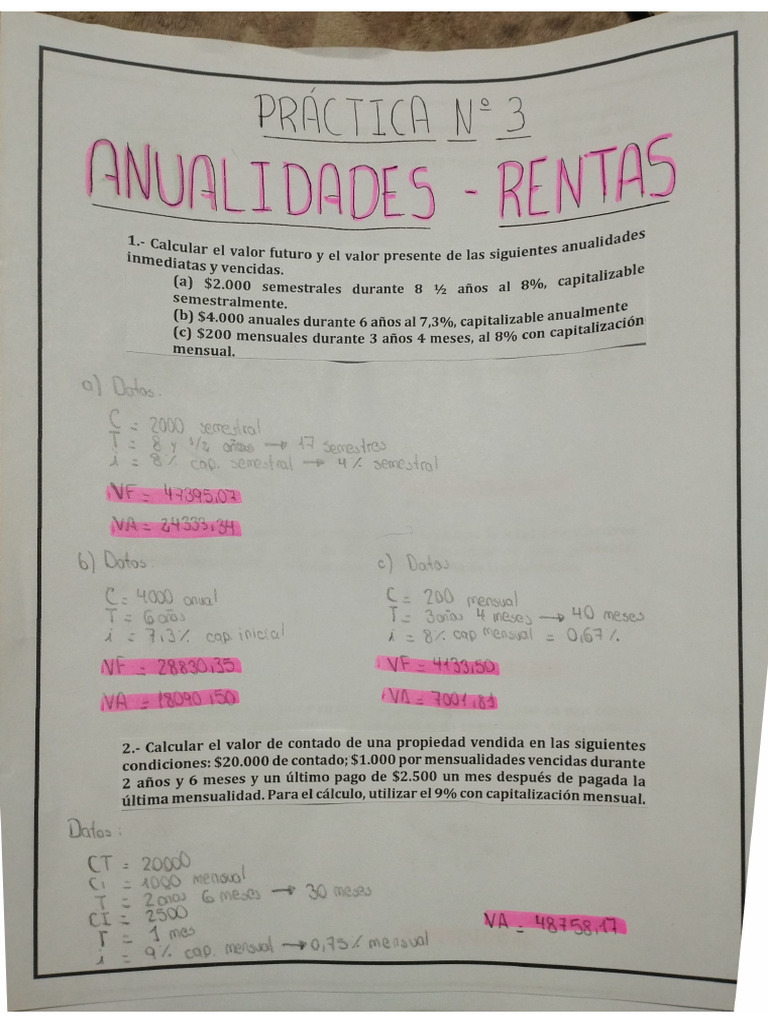 PRÁCTICA Nº 3
ANUALIDADES - RENTAS
1.- Calcular el valor futuro y el valor presente de las siguientes anualidades
inmediatas y vencidas.
(a) $2.000 semestrales durante 8 ½ años al 8%, capitalizable
semestralmente.
(b) $4.000 anuales durante 6 años al 7,3%, capitalizable anualmente
(c) $200 mensuales durante 3 años 4 meses, al 8% con capitalización
mensual.
a) Datos.
C = 2000 semestral
T = 8 y 1/2 años → 17 semestres
i = 8% cap. semestral → 4% semestral
VF = 47395,07
VA = 24333,34
b) Datos.
C = 4000 anual
T = 6 años
i = 7,3% cap. inicial
VF = 28830,35
VA = 18090,50
c) Datos
C = 200 mensual
T = 3 años 4 meses → 40 meses
i = 8% cap mensual = 0,67%
VF = 4133,50
VA = 7001,81
2.- Calcular el valor de contado de una propiedad vendida en las siguientes
condiciones: $20.000 de contado; $1.000 por mensualidades vencidas durante
2 años y 6 meses y un último pago de $2.500 un mes después de pagada la
última mensualidad. Para el cálculo, utilizar el 9% con capitalización mensual.
Datos:
CT = 20000
Ci = 1000 mensual
T = 2 anos 6 meses → 30 meses
CI = 2500
T = 1 mes
i = 9% cap. mensual → 0,75% mensual
VA = 48758,17